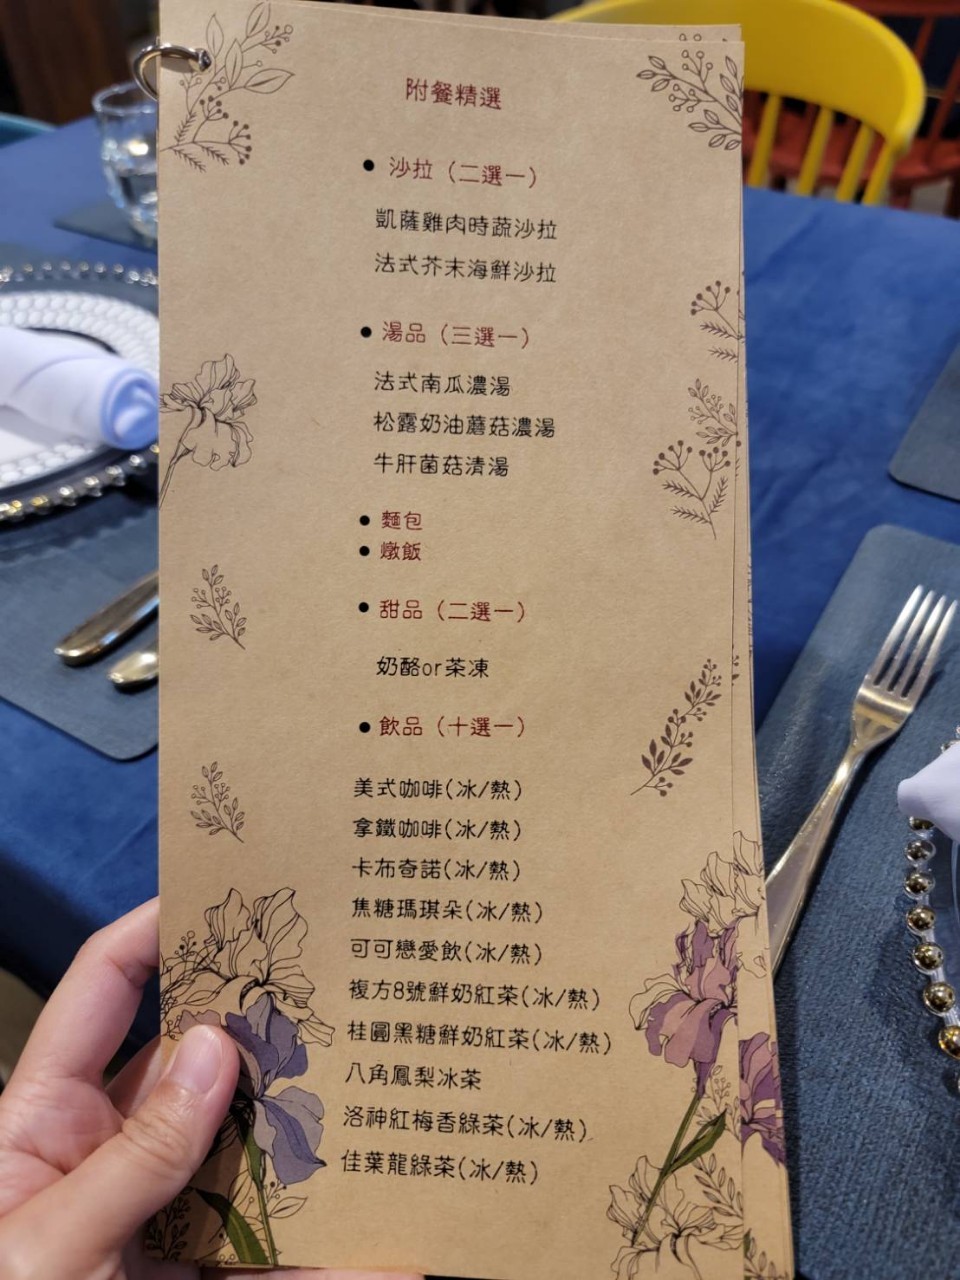 附餐精選
● 沙拉（二選一）
凱薩雞肉時蔬沙拉
法式芥末海鮮沙拉
● 湯品（三選一）
法式南瓜濃湯
松露奶油蘑菇濃湯
牛肝菌菇清湯
● 麵包
● 燉飯
● 甜品（二選一）
奶酪or茶凍
● 飲品（十選一）
美式咖啡(冰/熱)
拿鐵咖啡(冰/熱)
卡布奇諾(冰/熱)
焦糖瑪琪朵(冰/熱)
可可戀愛飲(冰/熱)
複方8號鮮奶紅茶(冰/熱)
桂圓黑糖鮮奶紅茶(冰/熱)
八角鳳梨冰茶
洛神紅梅香綠茶(冰/熱)
佳葉龍綠茶(冰/熱)